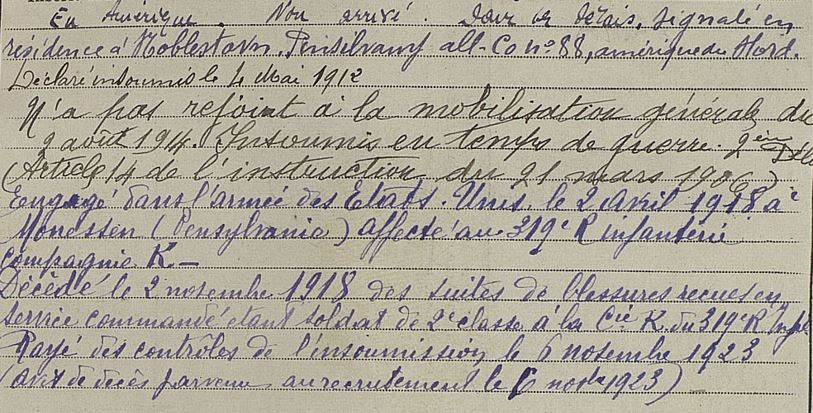 En Amérique. Non arrivé. Dans ce délais, signalé en
résidence à Noblestown. Pensilvany all-Co nº 88, amérique du Nord.
Déclaré insoumis le 4 Mai 1912
N'a pas rejoint à la mobilisation générale du
2 août 1914. Insoumis en temps de guerre.
(Article 14 de l'instruction du 21 mars 1906)
Engagé dans l'armée des Etats-Unis le 2 Avril 1918 à
Monessen (Pensylvania) affecté au 319e R infanterie
Compagnie K_
Décédé le 2 novembre 1918 des suites de blessures recues en
service commandé étant soldat de 2e classe à la Cie K du 319e R
Rayé des contrôles de l'insoumission le 6 novembre 1923
(avis de décès parvenu au recrutement le 6 1923)